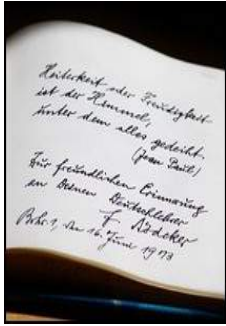 Heiterkeit oder Freudigkeit
ist der Himmel,
unter dem alles gedeiht.
(Jean Paul)
Zur freundlichen Erinnerung
an Deinen Deutschlehrer
F. Rödeker
den 16. Juni 1978